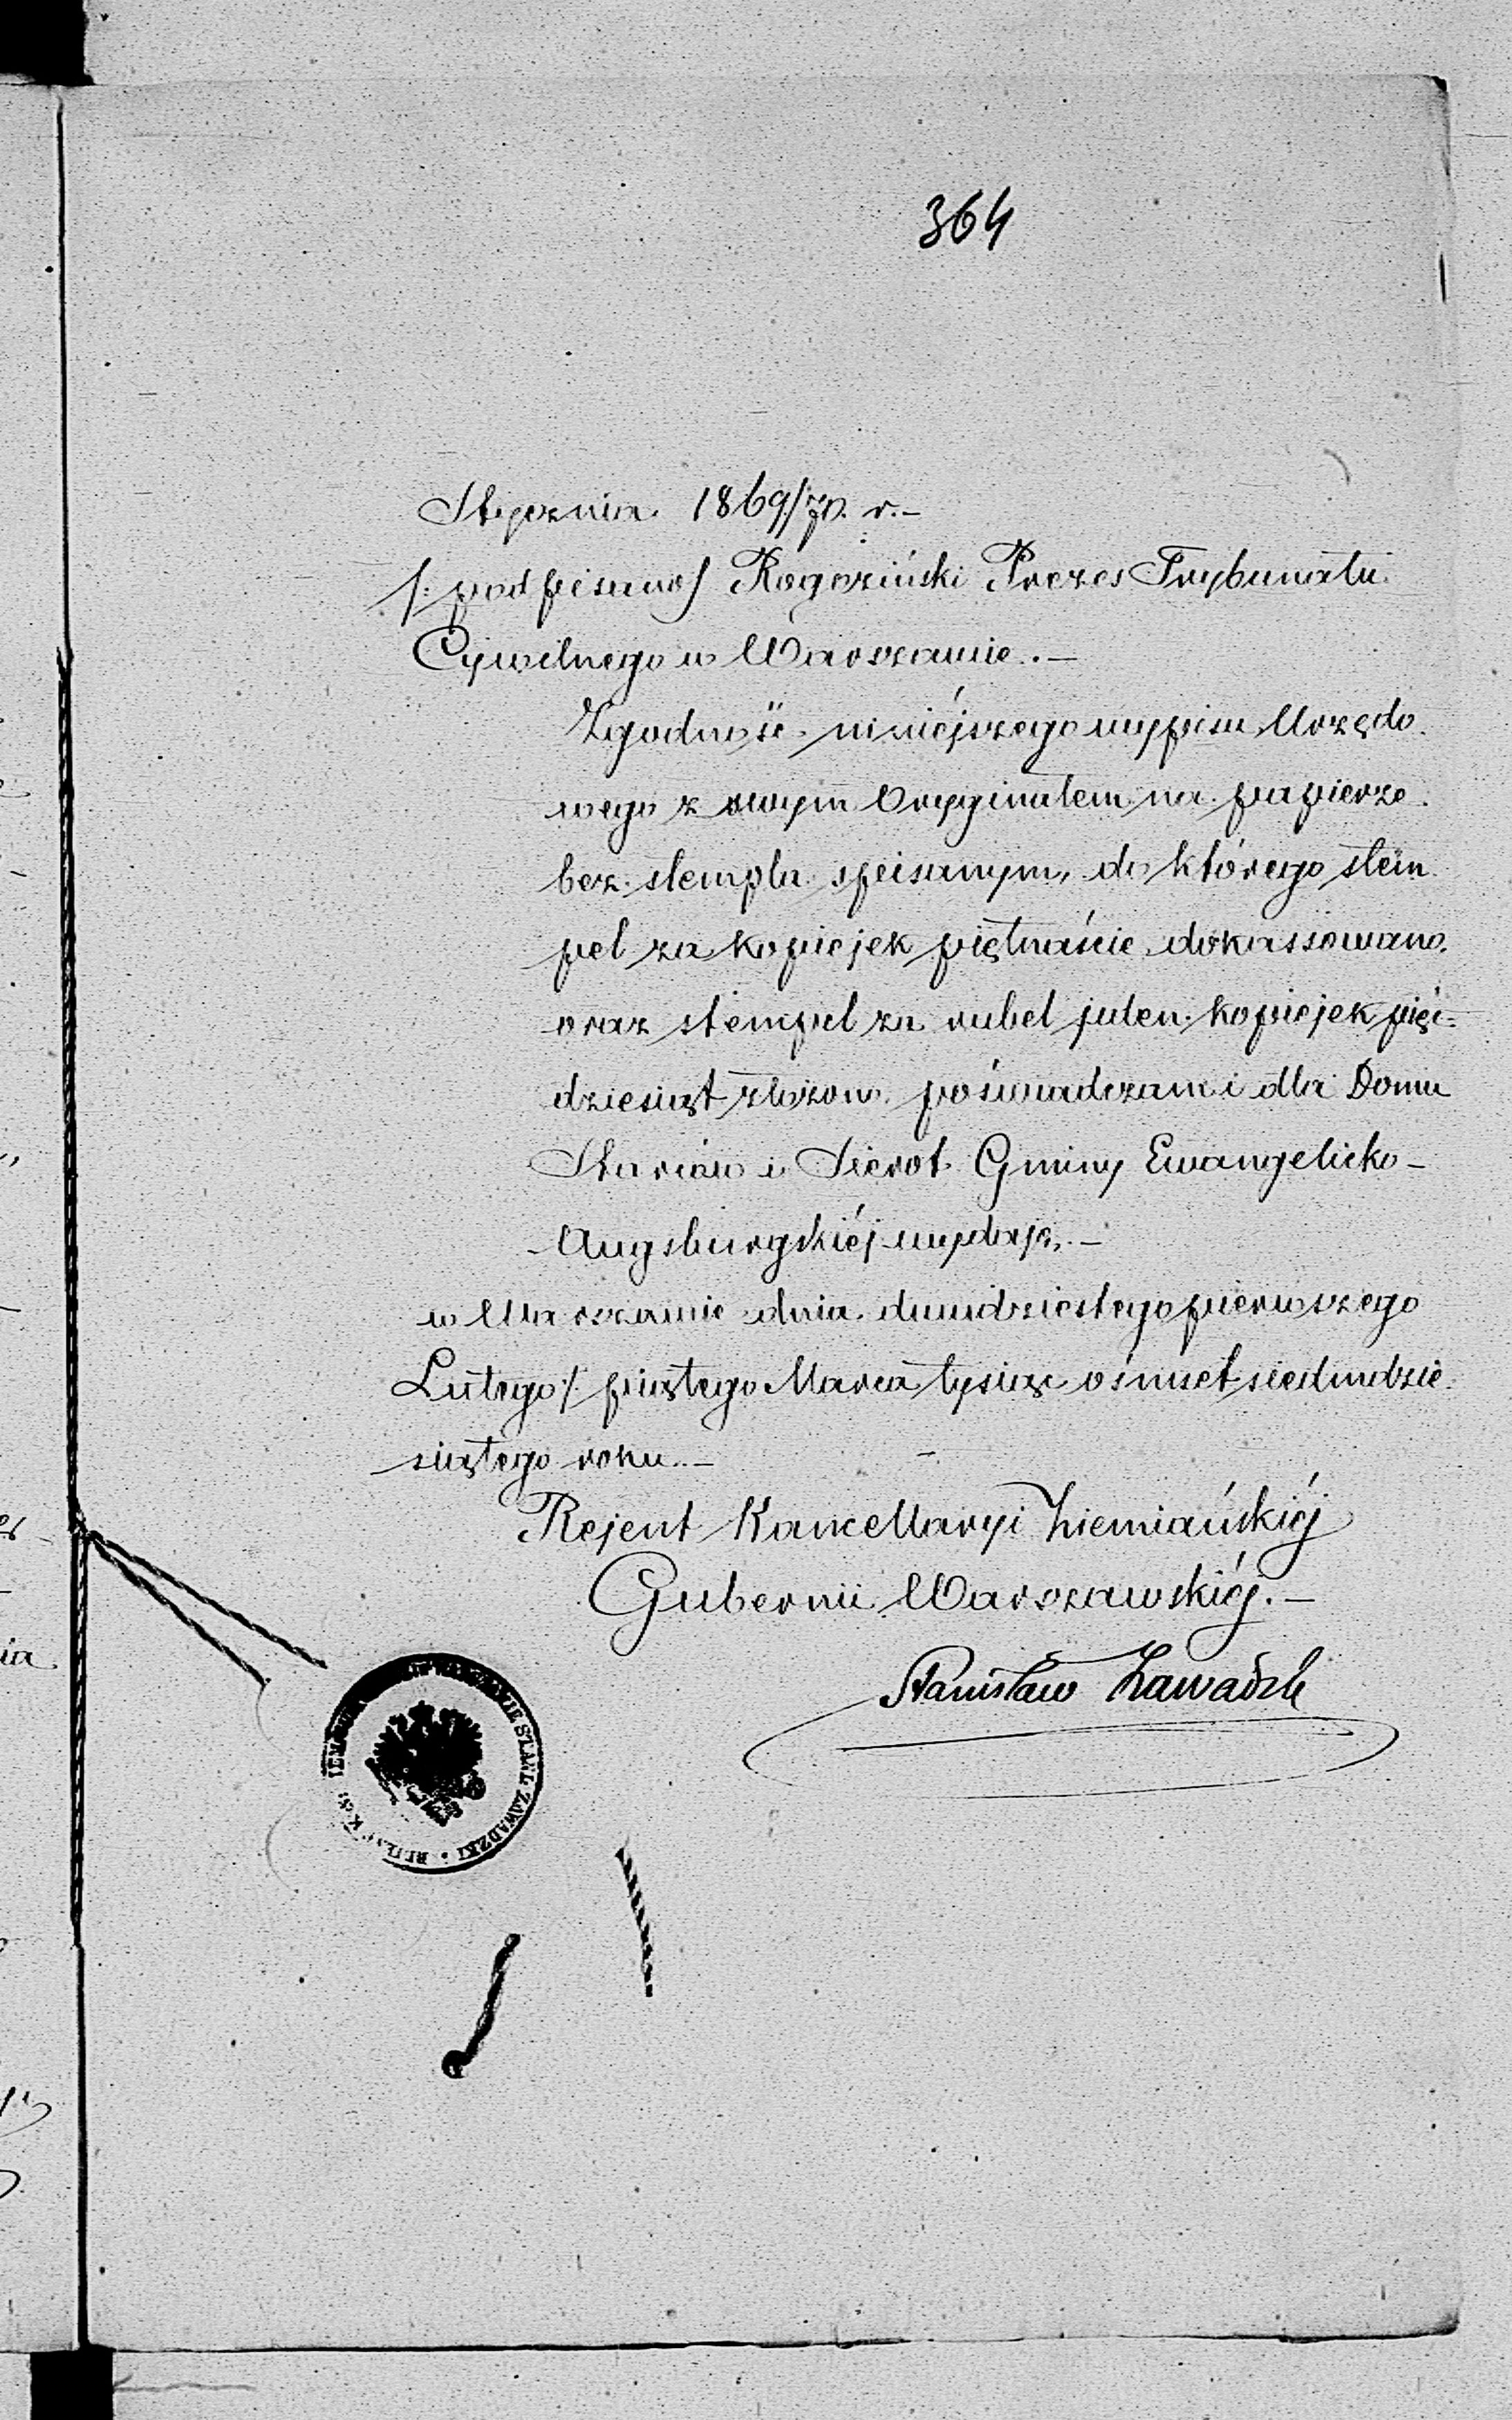 364
Stycznia 1869/70. r.–
/: podpisano/ Rogoziński Prezes Trybunału
Cywilnego w Warszawie.–
Zgodność niniéjszego wypisu Urzędo
wego z swym Oryginałem na papierze
bez stempla spisanym, do którego stem
pel za kopiejek piętnaście dokassowano,
oraz stempel za rubel jeden kopiejek pięć-
dziesiąt złożono poświadczam i dla Domu
Starców i Sierot Gminy Ewangelicko-
Augsburgskiéj wydaję.–
w Warszawie dnia dwudziestego pierwszego
Lutego/ piątego Marca tysiąc ośmset siedmdzie
siątego roku.–
Rejent Kancellaryi Ziemiańskiéj
Gubernii Warszawskiéj.–
Stanisław Zawadzki
STANI. ZAWADZKI